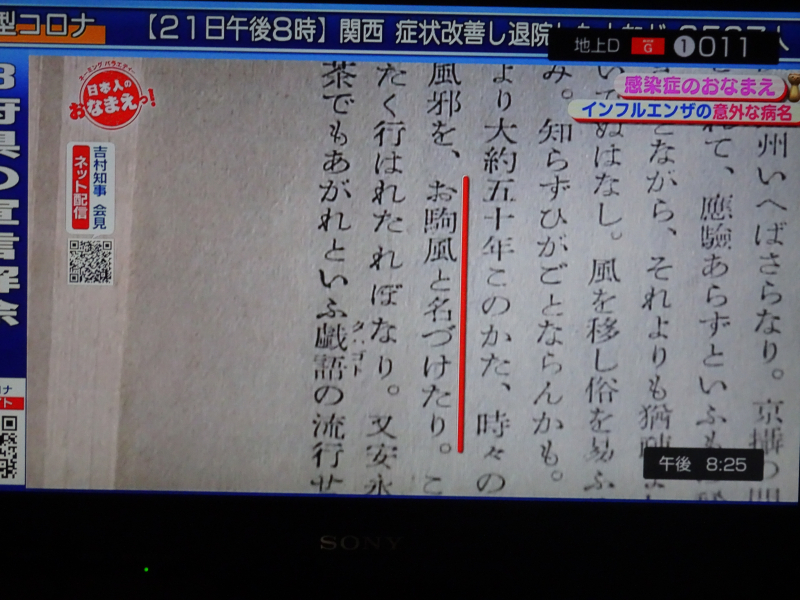 型コロナ
【21日午後8時】関西 症状改善し退院
地上D G ①011
感染症のおなまえ
インフルエンザの意外な病名
ネーミングバラエティー
日本人の
おなまえっ!
吉村知事 会見
ネット配信
府県の宣言解除
州いへばさらなり。京攝の
れて、應驗あらずといふも
とながら、それよりも猶
ぬはなし。風を移し俗を易ふ
み。知らずひがごとならんかも。
より大約五十年このかた、時々の
風邪を、お駒風と名づけたり。こ
たく行はれたればなり。又安永
茶でもあがれといふ戯語の流行せ
タハゴト
午後 8:25
SONY